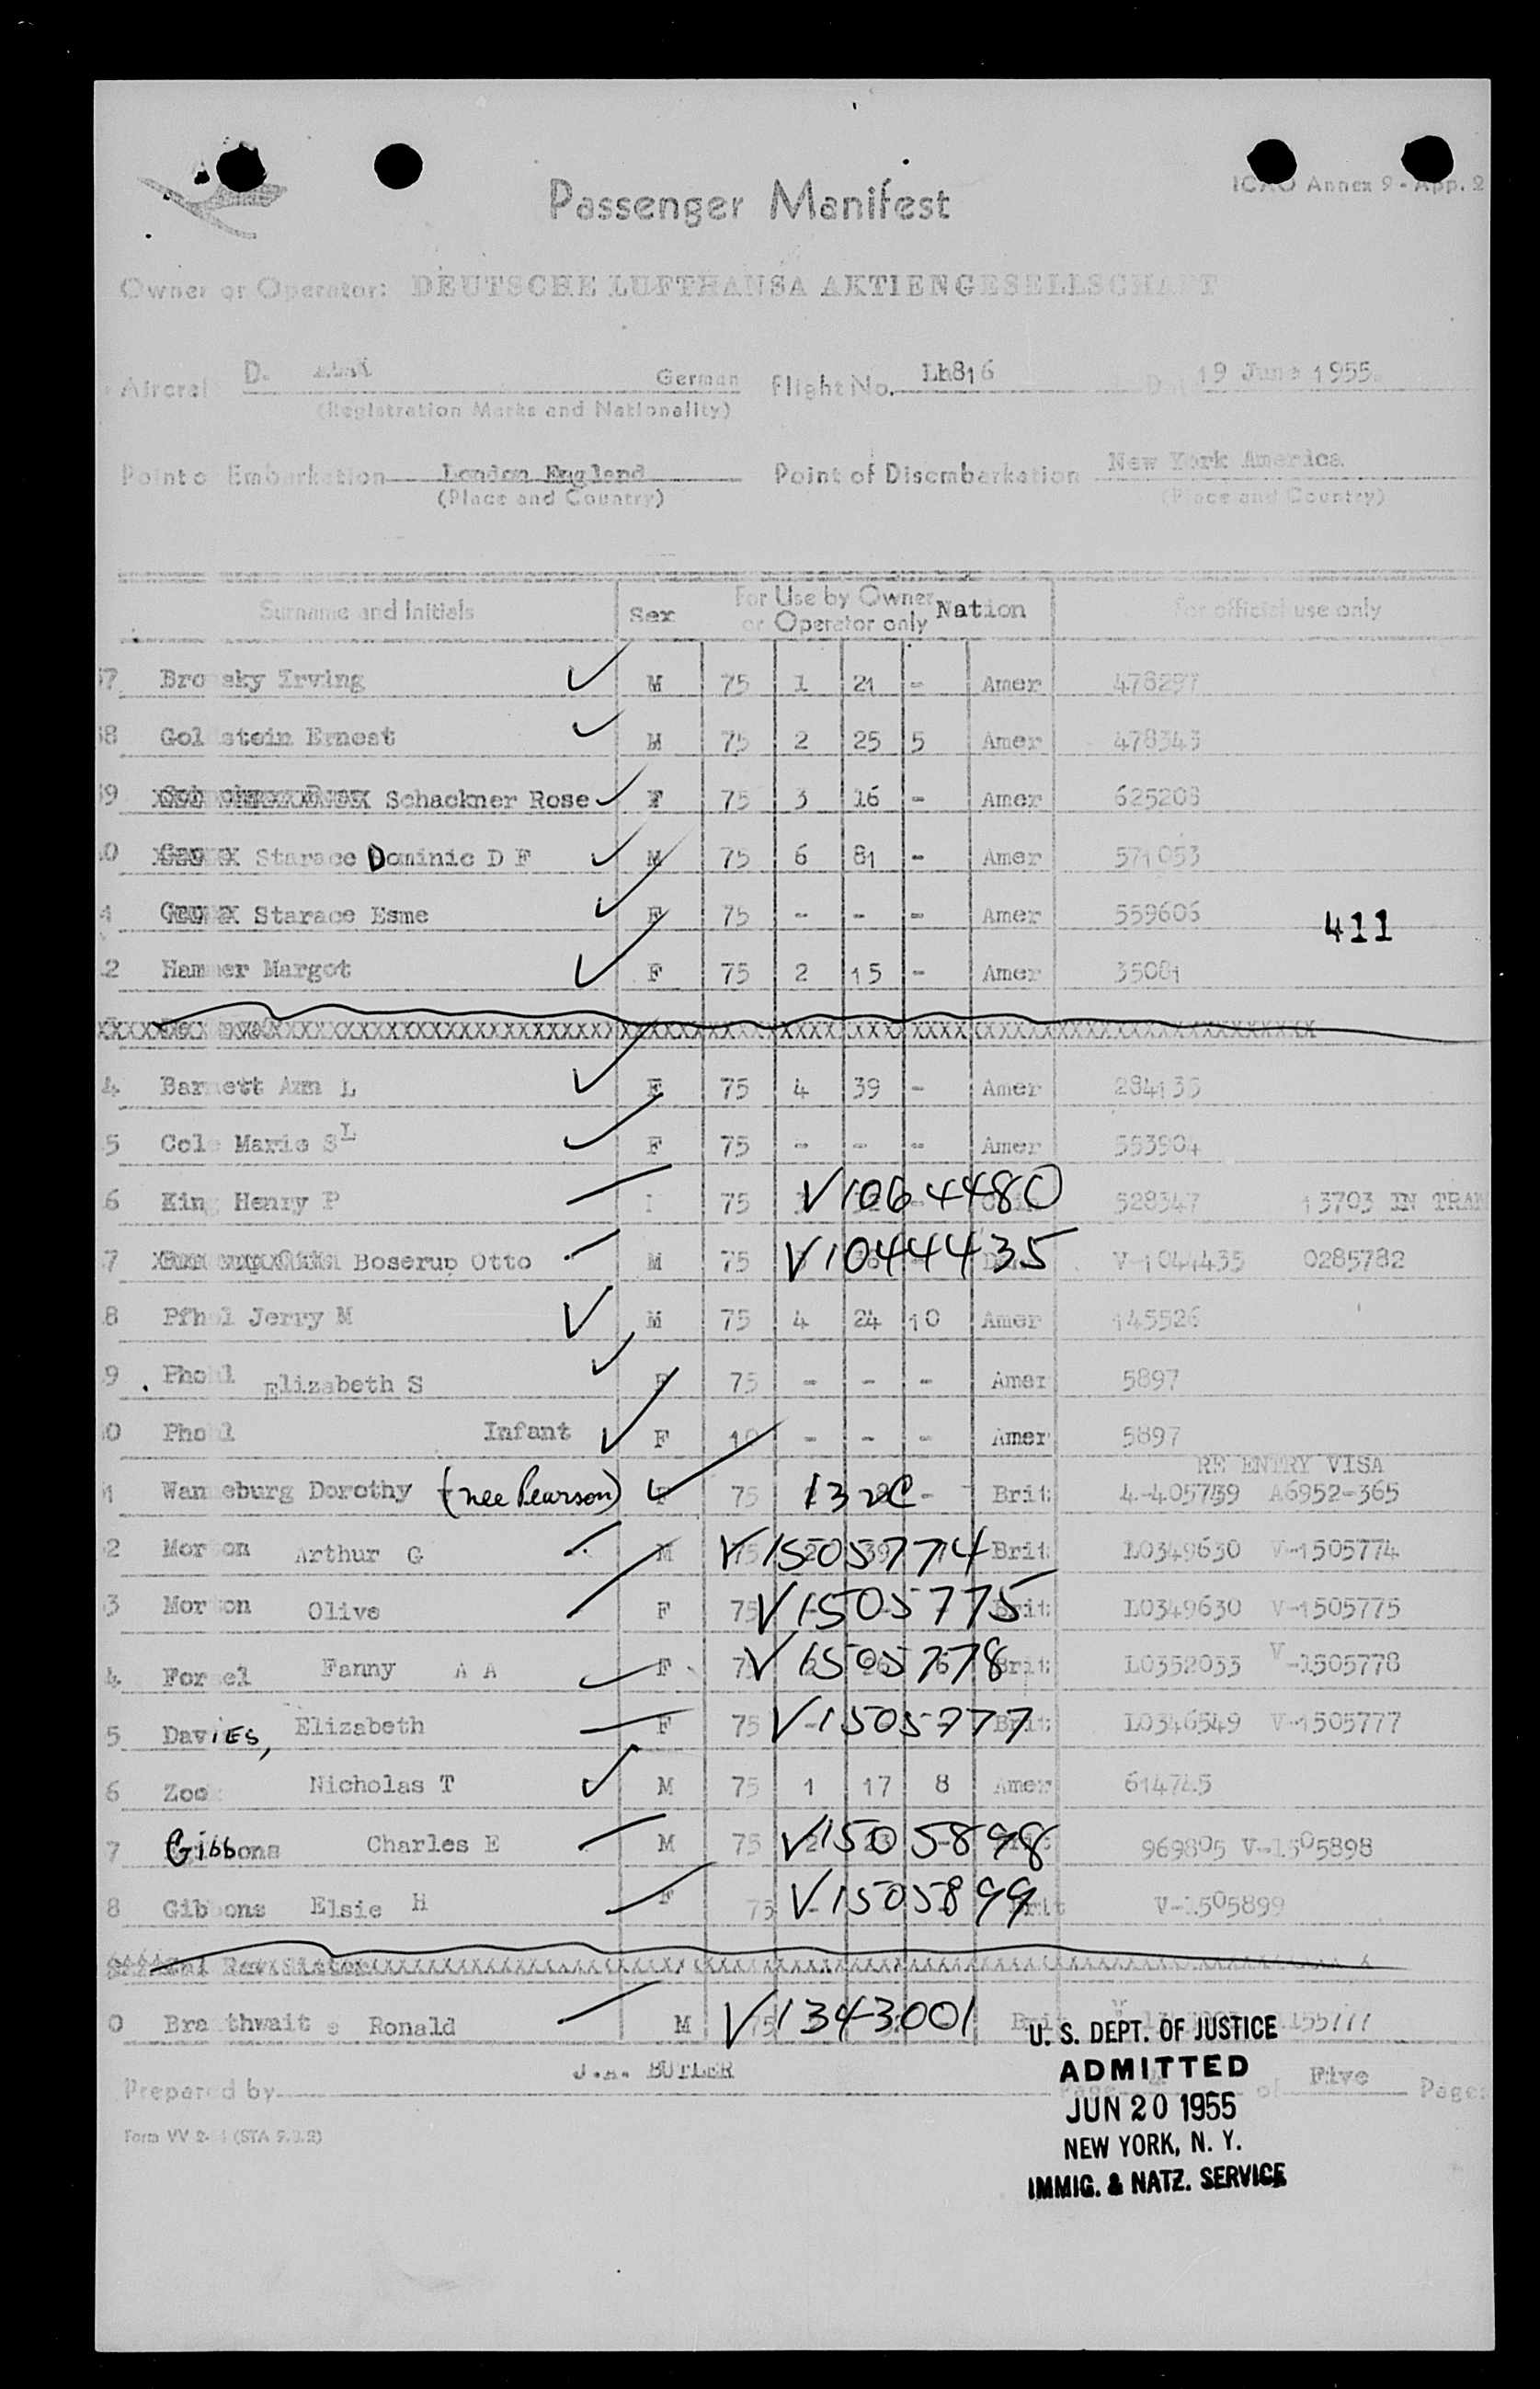 ICAO Annex 9 - App. 2
Passenger Manifest
Owner or Operator: DEUTSCHE LUFTHANSA AKTIENGESELLSCHAFT
Aircraf D. German Flight No. Lh816 19 June 1955.
(Registration Marks and Nationality)
Point o Embarkation London England Point of Disembarkation New York America
(Place and Country) (Place and Country)
Surname and Initials Sex For Use by Owner or Operator only Nation For official use only
37 Bro sky Irving M 75 1 21 - Amer 478297
38 Gol stein Ernest M 75 2 25 5 Amer 478343
39 Schackner Rose F 75 3 16 - Amer 625208
0 Starace Dominic D F M 75 6 81 - Amer 571053
1 Starace Esme F 75 - - - Amer 559606
411
2 Hammer Margot F 75 2 15 - Amer 35081
4 Barnett Ann L F 75 4 39 - Amer 284135
5 Cole Marie S L F 75 - - - Amer 553904
6 King Henry P 75 V1064480 528347 13703 IN TRAN
7 Boserup Otto M 75 V10444435 V-1044435 0285782
8 Pfhol Jerry M M 75 4 24 10 Amer 145526
9 Phohl Elizabeth S F 75 - - - Amer 5897
0 Phohl Infant F 10 - - - Amer 5897
RE ENTRY VISA
1 Wanneburg Dorothy (nee Pearson) F 75 132C - Brit: 4-405739 A6952-365
2 Morton Arthur G M 75 V1505774 Brit: L0349630 V-1505774
3 Morton Olive F 75 V1505775 Brit: L0349630 V-1505775
4 For el Fanny A A F 75 V1505778 Brit: L0352033 V-1505778
5 DavIES, Elizabeth F 75 V1505777 Brit: L0346549 V-1505777
6 Zook Nicholas T M 75 1 17 8 Amer 614745
7 Gibbons Charles E M 75 V1505898 Brit: 969805 V-1505898
8 Gibbons Elsie H F 75 V1505899 Brit V-1505899
0 Bra thwaite Ronald M 75 V1343001 Brit 155777
U. S. DEPT. OF JUSTICE
ADMITTED
JUN 20 1955
NEW YORK, N. Y.
IMMIG. & NATZ. SERVICE
Prepared by J.A. BUTLER Page 4 of Five Pages
Form VV 2-